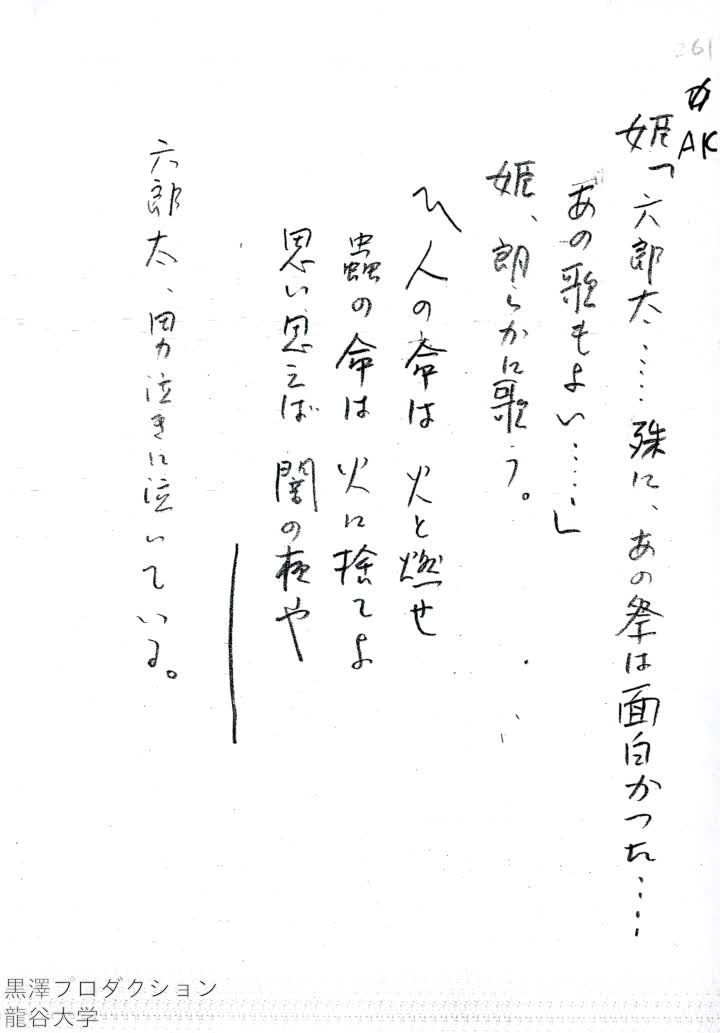 261
AK
姫「六郎太……殊に、あの祭は面白かった……
あの歌もよい……」
姫、朗らかに歌う。
〽人の命は 火と燃せ
蟲の命は 火に捨てよ
思い思えば 闇の夜や
六郎太、男泣きに泣いている。
黒澤プロダクション
龍谷大学